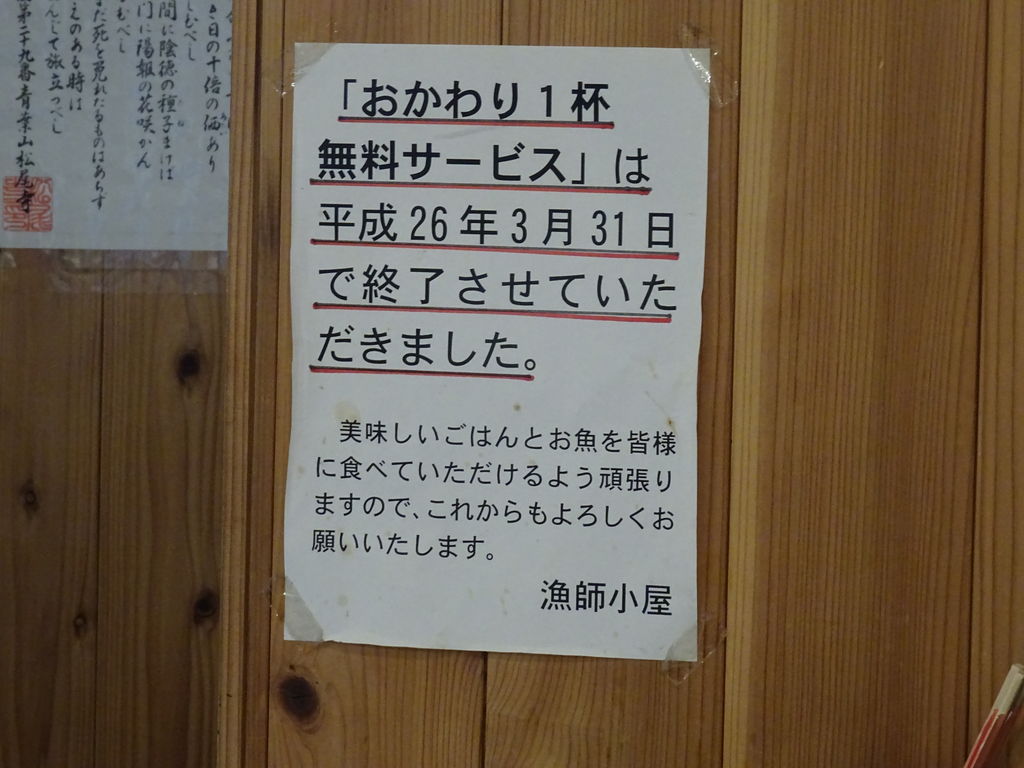 「おかわり1杯
無料サービス」は
平成26年3月31日
で終了させていた
だきました。
美味しいごはんとお魚を皆様
に食べていただけるよう頑張り
ますので、これからもよろしくお
願いいたします。
漁師小屋
日の十倍の価あり
むべし
間に陰徳の種子まけは
門に陽報の花咲かん
むべし
だ死を免れたるものはあらず
えのある時は
んして旅立つべし
第二十九番青葉山松尾寺